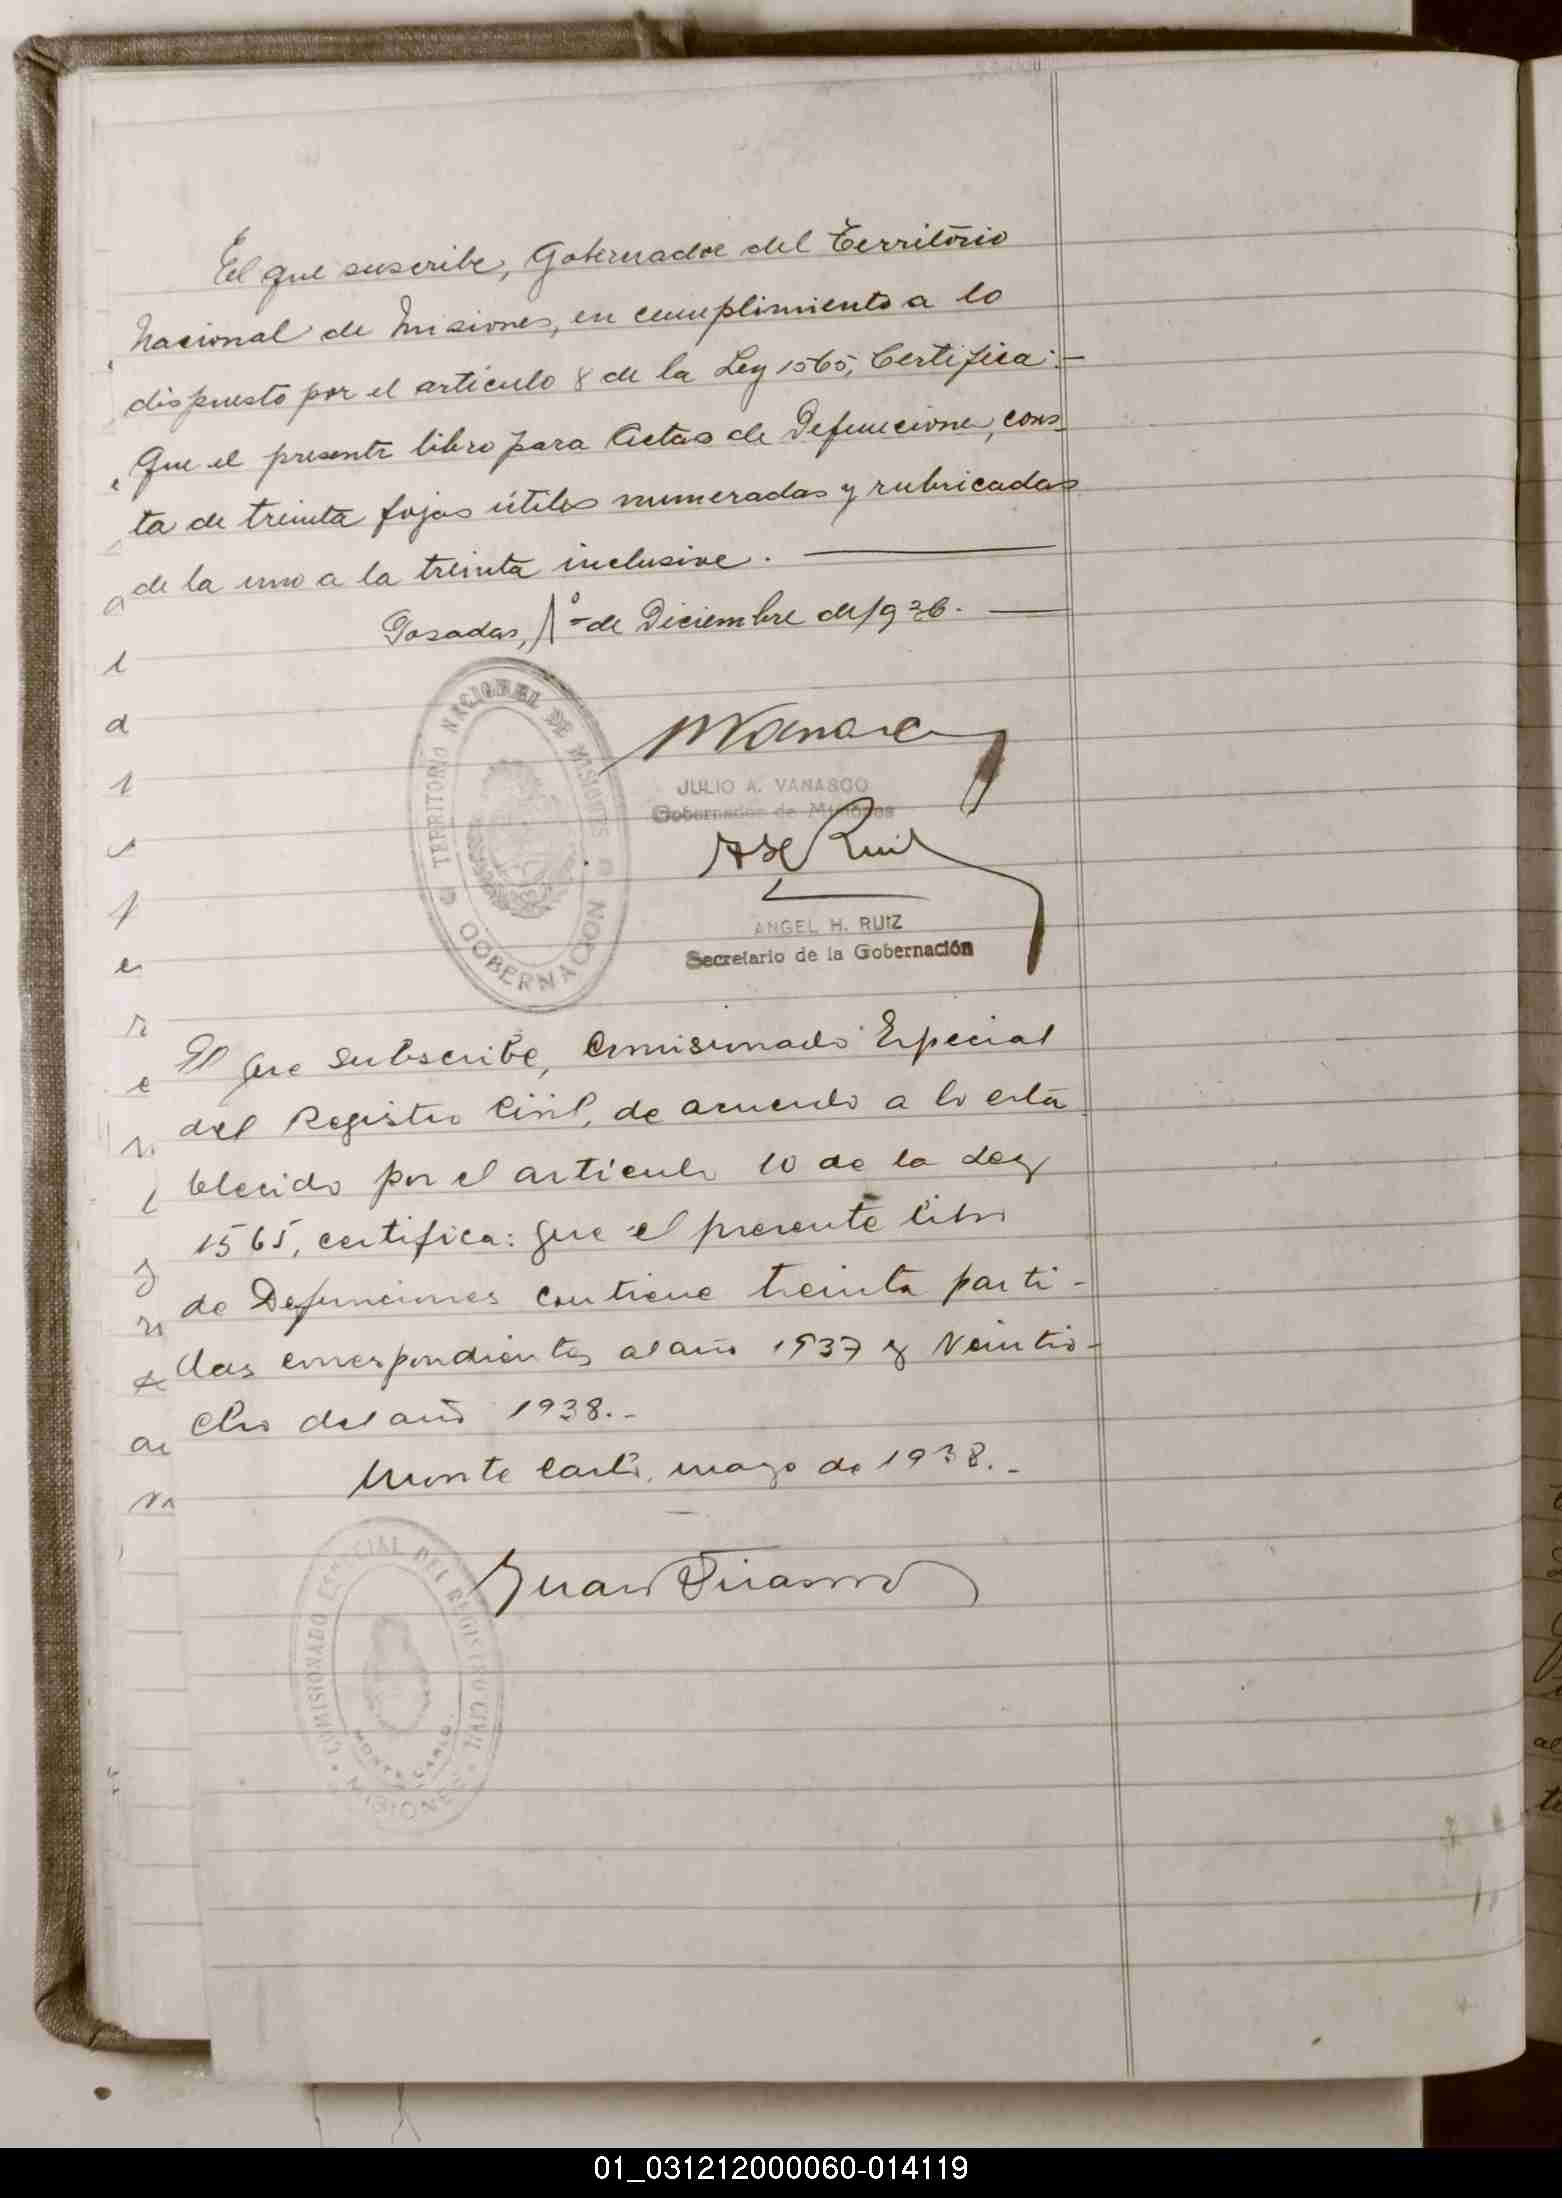 El que suscribe, Gobernador del Territorio
Nacional de Misiones, en cumplimiento a lo
dispuesto por el artículo 8 de la Ley 1565, Certifica:-
Que el presente libro para Actas de Defunciones, cons-
ta de treinta fojas útiles numeradas y rubricadas
de la uno a la treinta inclusive.
Posadas, 1º de Diciembre de 1936.
TERRITORIO NACIONAL DE MISIONES
GOBERNACION
JULIO A. VANASCO
Gobernador de Misiones
A H Ruiz
ANGEL H. RUIZ
Secretario de la Gobernación
El que subscribe, Comisionado Especial
del Registro Civil, de acuerdo a lo esta
blecido por el artículo 10 de la Ley
1565, certifica: que el presente libro
de Defunciones contiene treinta parti-
das correspondientes al año 1937 y Veintio-
cho del año 1938.-
Monte Carlo, mayo de 1938.-
Juan
COMISIONADO ESPECIAL DEL REGISTRO CIVIL
MONTE CARLO
MISIONES
01_031212000060-014119